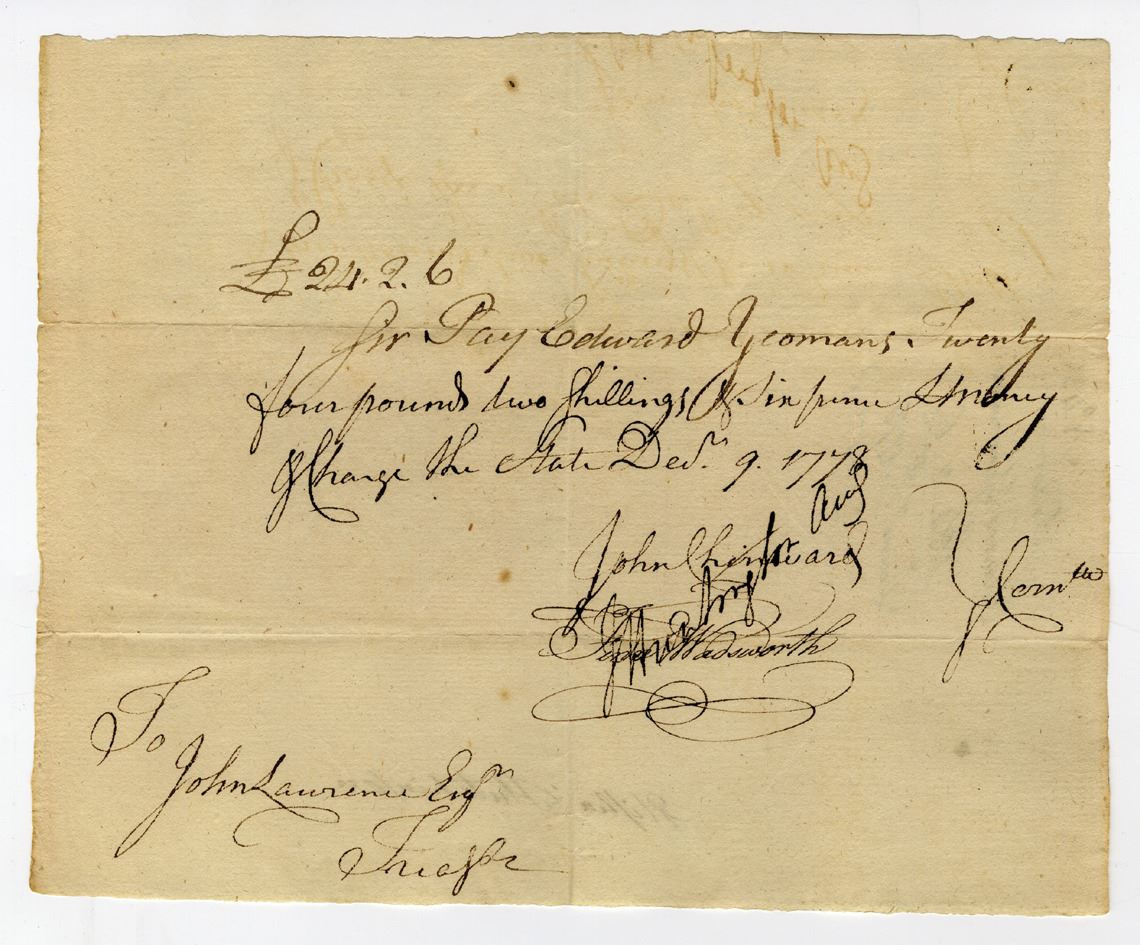 £ 24. 2. 6
Sir Pay Edward Yeomans Twenty
four pounds two Shillings & Six pence L money
& Charge the State Decr. 9. 1778
John Chenward
Wadsworth
Comtte
To
John Lawrence Esqr
Treasr